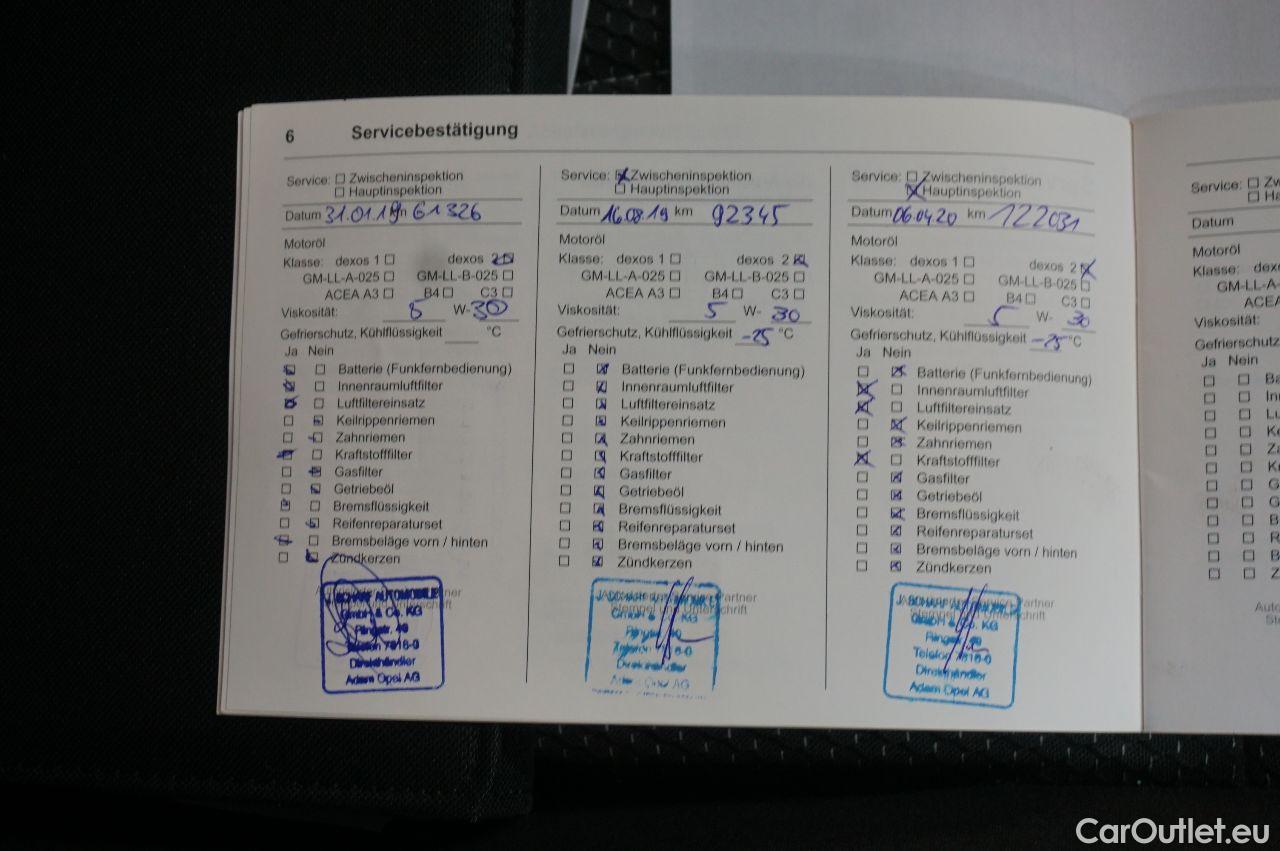 6 Servicebestätigung
Service: Zwischeninspektion
Hauptinspektion
Datum 31.01.19 61326
Motoröl
Klasse: dexos 1 dexos 2
GM-LL-A-025 GM-LL-B-025
ACEA A3 B4 C3
Viskosität: 5 W-30
Gefrierschutz, Kühlflüssigkeit °C
Ja Nein
Batterie (Funkfernbedienung)
Innenraumluftfilter
Luftfiltereinsatz
Keilrippenriemen
Zahnriemen
Kraftstofffilter
Gasfilter
Getriebeöl
Bremsflüssigkeit
Reifenreparaturset
Bremsbeläge vorn / hinten
Zündkerzen
AUTOMOBILE
GmbH & Co. KG
Ringstr. 40
Telefon 7816-0
Direkthändler
Adam Opel AG
Service: Zwischeninspektion
Hauptinspektion
Datum 16.08.19 km 92345
Motoröl
Klasse: dexos 1 dexos 2
GM-LL-A-025 GM-LL-B-025
ACEA A3 B4 C3
Viskosität: 5 W- 30
Gefrierschutz, Kühlflüssigkeit -25 °C
Ja Nein
Batterie (Funkfernbedienung)
Innenraumluftfilter
Luftfiltereinsatz
Keilrippenriemen
Zahnriemen
Kraftstofffilter
Gasfilter
Getriebeöl
Bremsflüssigkeit
Reifenreparaturset
Bremsbeläge vorn / hinten
Zündkerzen
Partner
Stempel und Unterschrift
GmbH & Co. KG
Telefon
Direkthändler
Adam Opel AG
Service: Zwischeninspektion
Hauptinspektion
Datum 06.04.20 km 122031
Motoröl
Klasse: dexos 1 dexos 2
GM-LL-A-025 GM-LL-B-025
ACEA A3 B4 C3
Viskosität: 5 W- 30
Gefrierschutz, Kühlflüssigkeit -25 °C
Ja Nein
Batterie (Funkfernbedienung)
Innenraumluftfilter
Luftfiltereinsatz
Keilrippenriemen
Zahnriemen
Kraftstofffilter
Gasfilter
Getriebeöl
Bremsflüssigkeit
Reifenreparaturset
Bremsbeläge vorn / hinten
Zündkerzen
Partner
Stempel und Unterschrift
GmbH & Co. KG
Ringstr. 40
Telefon 7816-0
Direkthändler
Adam Opel AG
Service: Zw
Ha
Datum
Motoröl
Klasse: dexo
GM-LL-A-
ACEA
Viskosität:
Gefrierschutz
Ja Nein
Ba
In
Lu
Ke
Za
K
G
G
B
R
B
Z
Auto
Ste
CarOutlet.eu